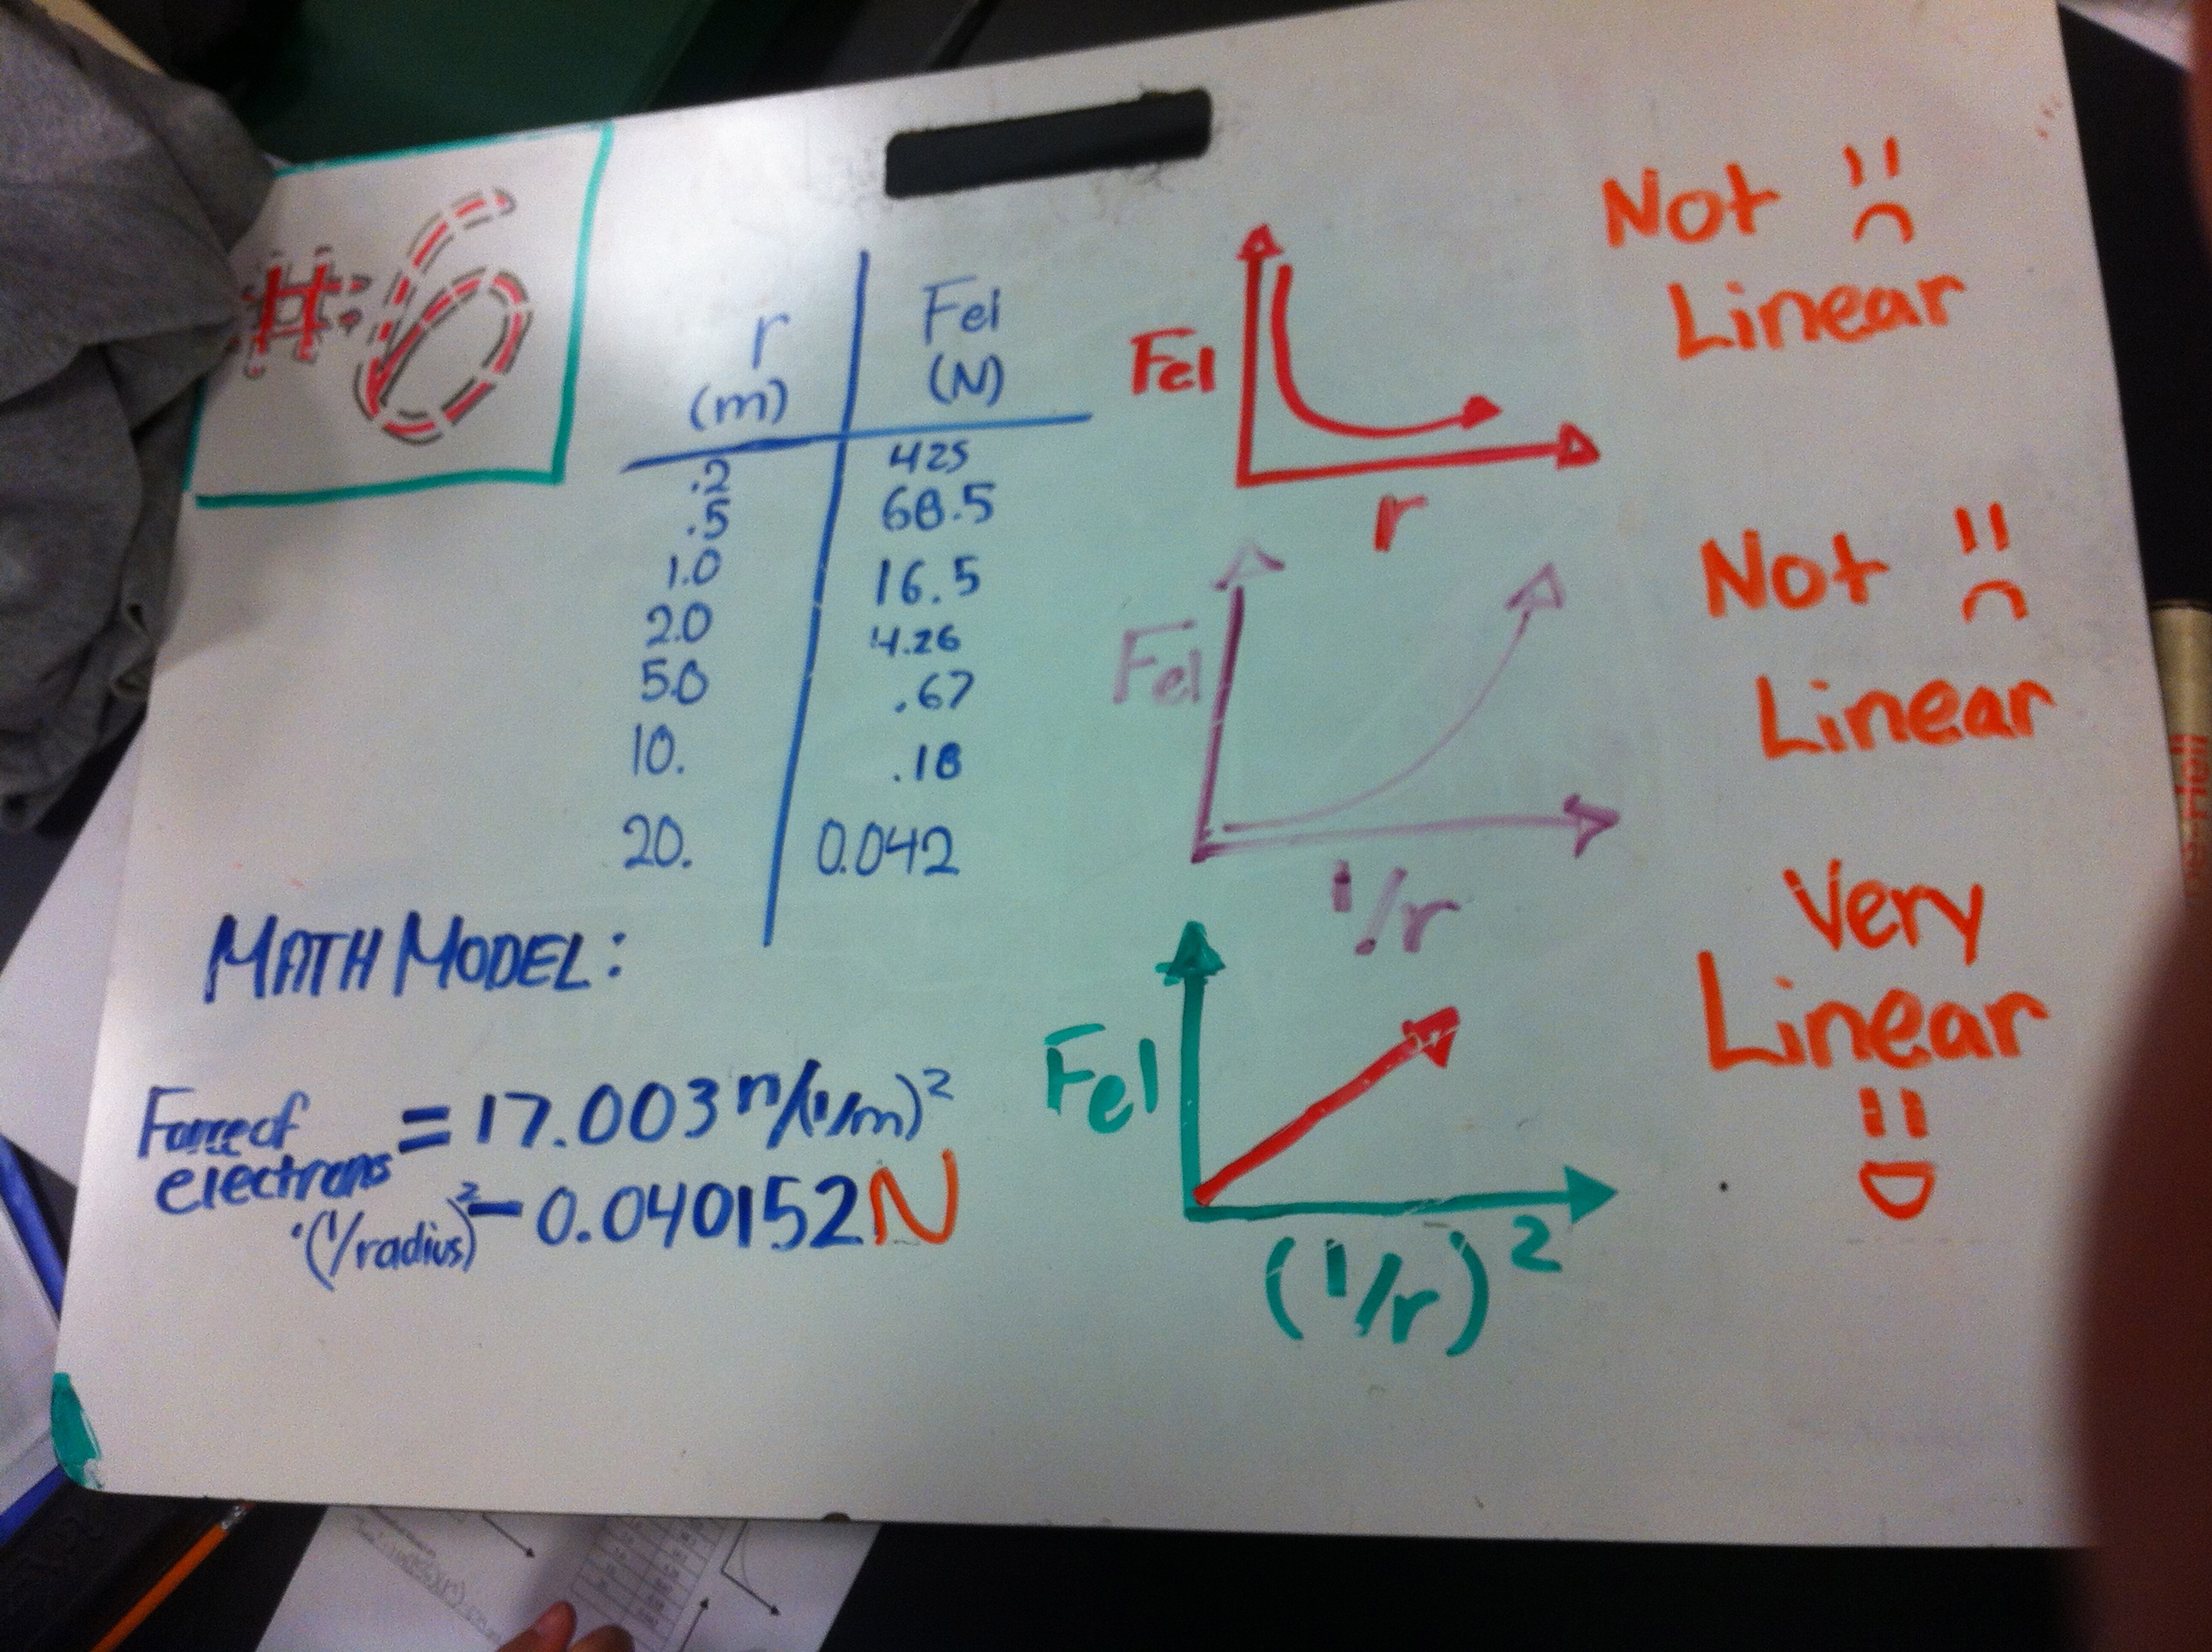 #6
r Fel
(m) (N)
.2 425
.5 68.5
1.0 16.5
2.0 4.26
5.0 .67
10. .18
20. 0.042
MATH MODEL:
Force of electrons = 17.003 n/(1/m)²
·(1/radius)² - 0.040152 N
Fel
r
Not
Linear
Fel
1/r
Not
Linear
Fel
(1/r)²
Very
Linear